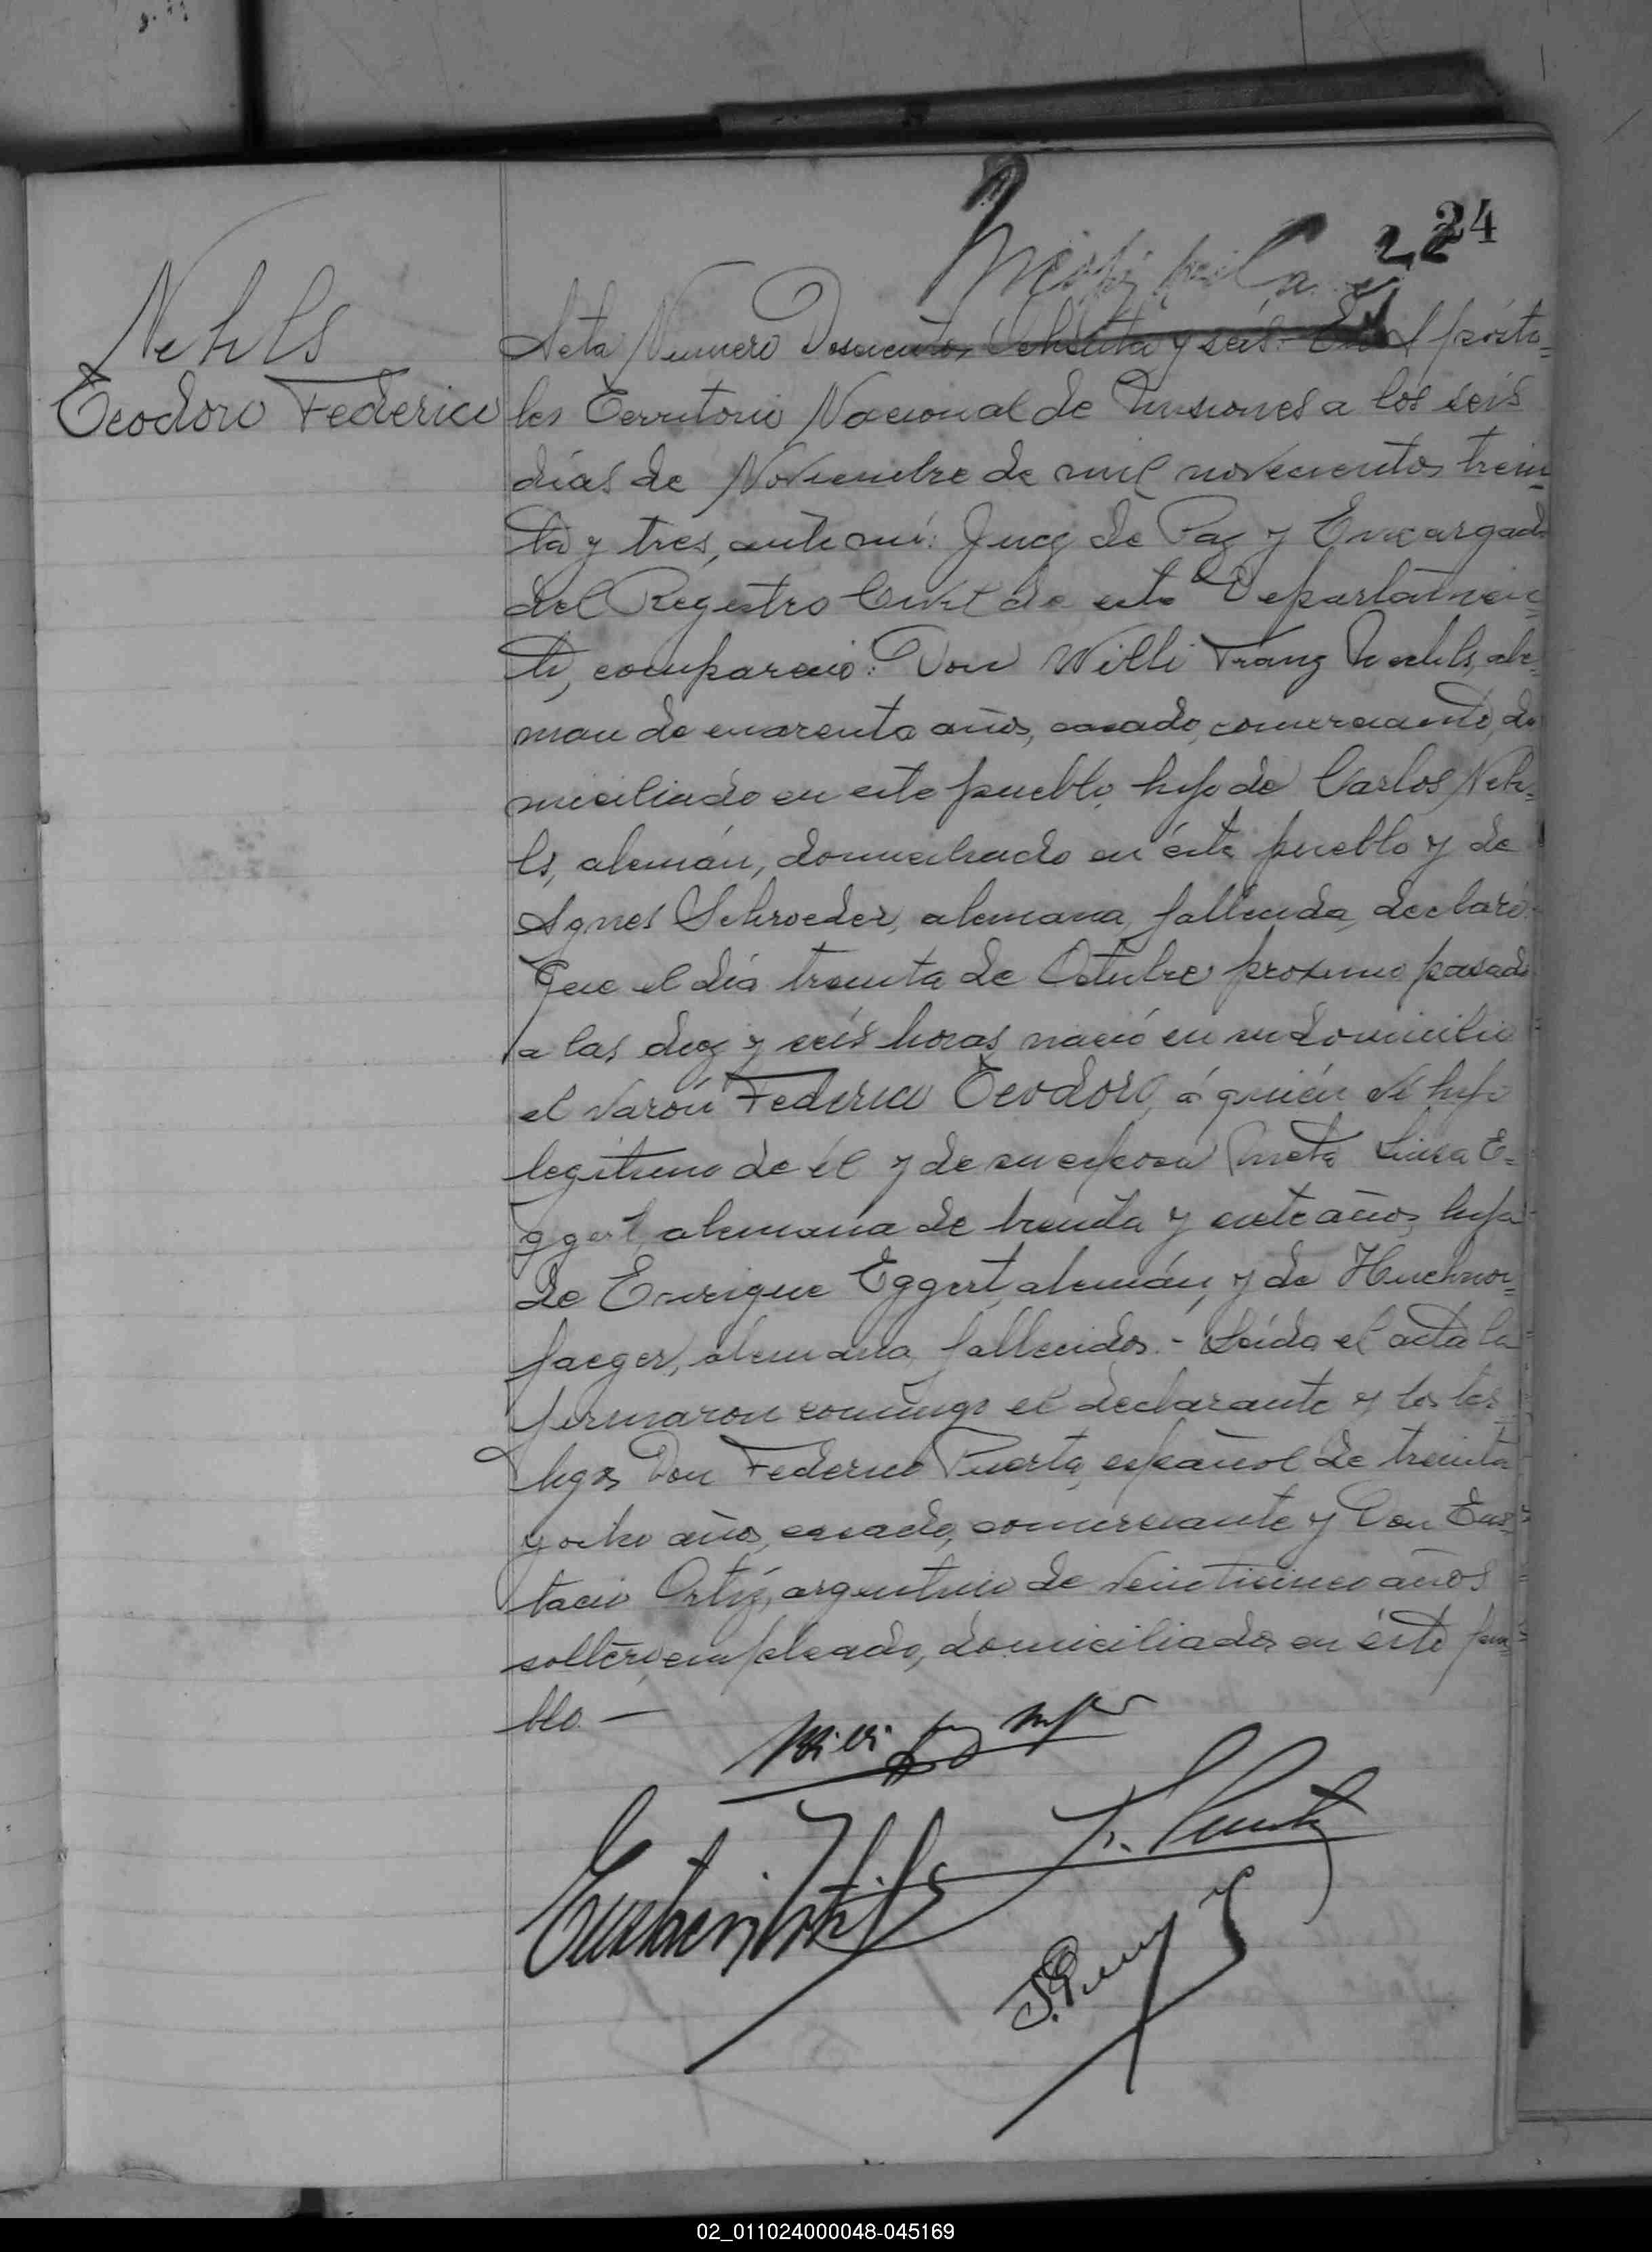 24
22
Nehls
Teodoro Federico
Acta Numero Doscientos Ochenta y seis: En Apósto=
les Territorio Nacional de Misiones a los seis
días de Noviembre de mil novecientos trein
ta y tres, ante mí: Juez de Paz y Encargado
del Registro Civil de este Departamen=
to, compareció: Don Willi Franz Nehls, ale=
man de cuarenta años, casado, comerciante, do
miciliado en este pueblo, hijo de Carlos Neh=
ls, alemán, domiciliado en éste pueblo y de
Agnes Schroeder, alemana, fallecida, declaró:
Que el día treinta de Octubre proximo pasado
a las diez y seis horas nació en su domicilio
el varón Federico Teodoro, á quién vi hijo
legítimo de él y de su esposa Meta Luisa E=
ggert, alemana de treinta y siete años, hija
de Enrique Eggert, alemán, y de
Jaeger, alemana, fallecidos.- Leída el acta la
firmaron conmigo el declarante y los tes
tigos Don Federico Puerta, español de treinta
y ocho años, casado, comerciante y Don Eus=
tacio Ortíz, argentino de veinticinco años
soltero, empleado, domiciliados en éste pue=
blo.—
Willi
F. Puerta
Eustacio Ortiz
02_011024000048-045169